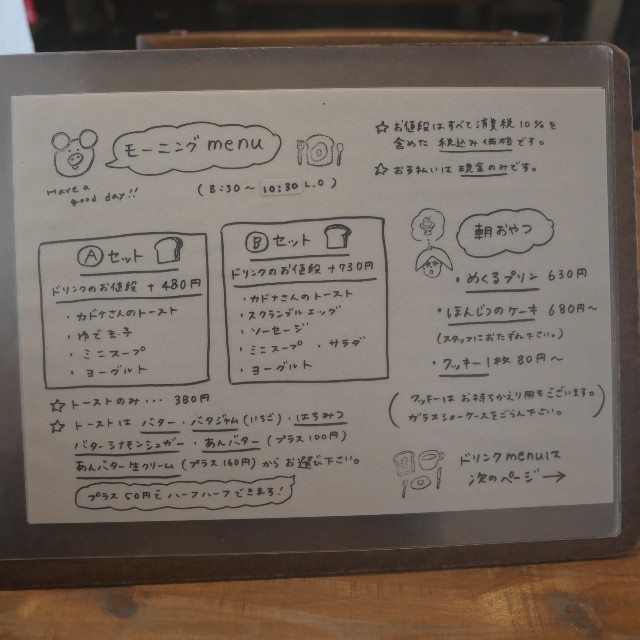 モーニング menu
Have a
good day!!
(8:30~ 10:30 L.O)
☆ お値段はすべて消費税10%を
含めた 税込み価格です。
☆ お支払いは 現金のみです。
Ⓐ セット
ドリンクのお値段 + 480円
・カドナさんのトースト
・ゆで玉子
・ミニスープ
・ヨーグルト
Ⓑ セット
ドリンクのお値段 + 730円
・カドナさんのトースト
・スクランブルエッグ
・ソーセージ
・ミニスープ ・サラダ
・ヨーグルト
朝おやつ
・めくるプリン 630円
・ほんじつのケーキ 680円~
(スタッフにおたずね下さい。)
・クッキー1枚 80円~
(クッキーは お持ちかえり用もございます。
ガラスショーケースをごらん下さい。)
☆ トーストのみ・・・ 380円
☆ トーストは バター・バタジャム(いちご)・はちみつ
バターシナモンシュガー・あんバター(プラス100円)
あんバター生クリーム(プラス160円)からお選び下さい。
プラス50円でハーフハーフできます!
ドリンクmenuは
次のページ→